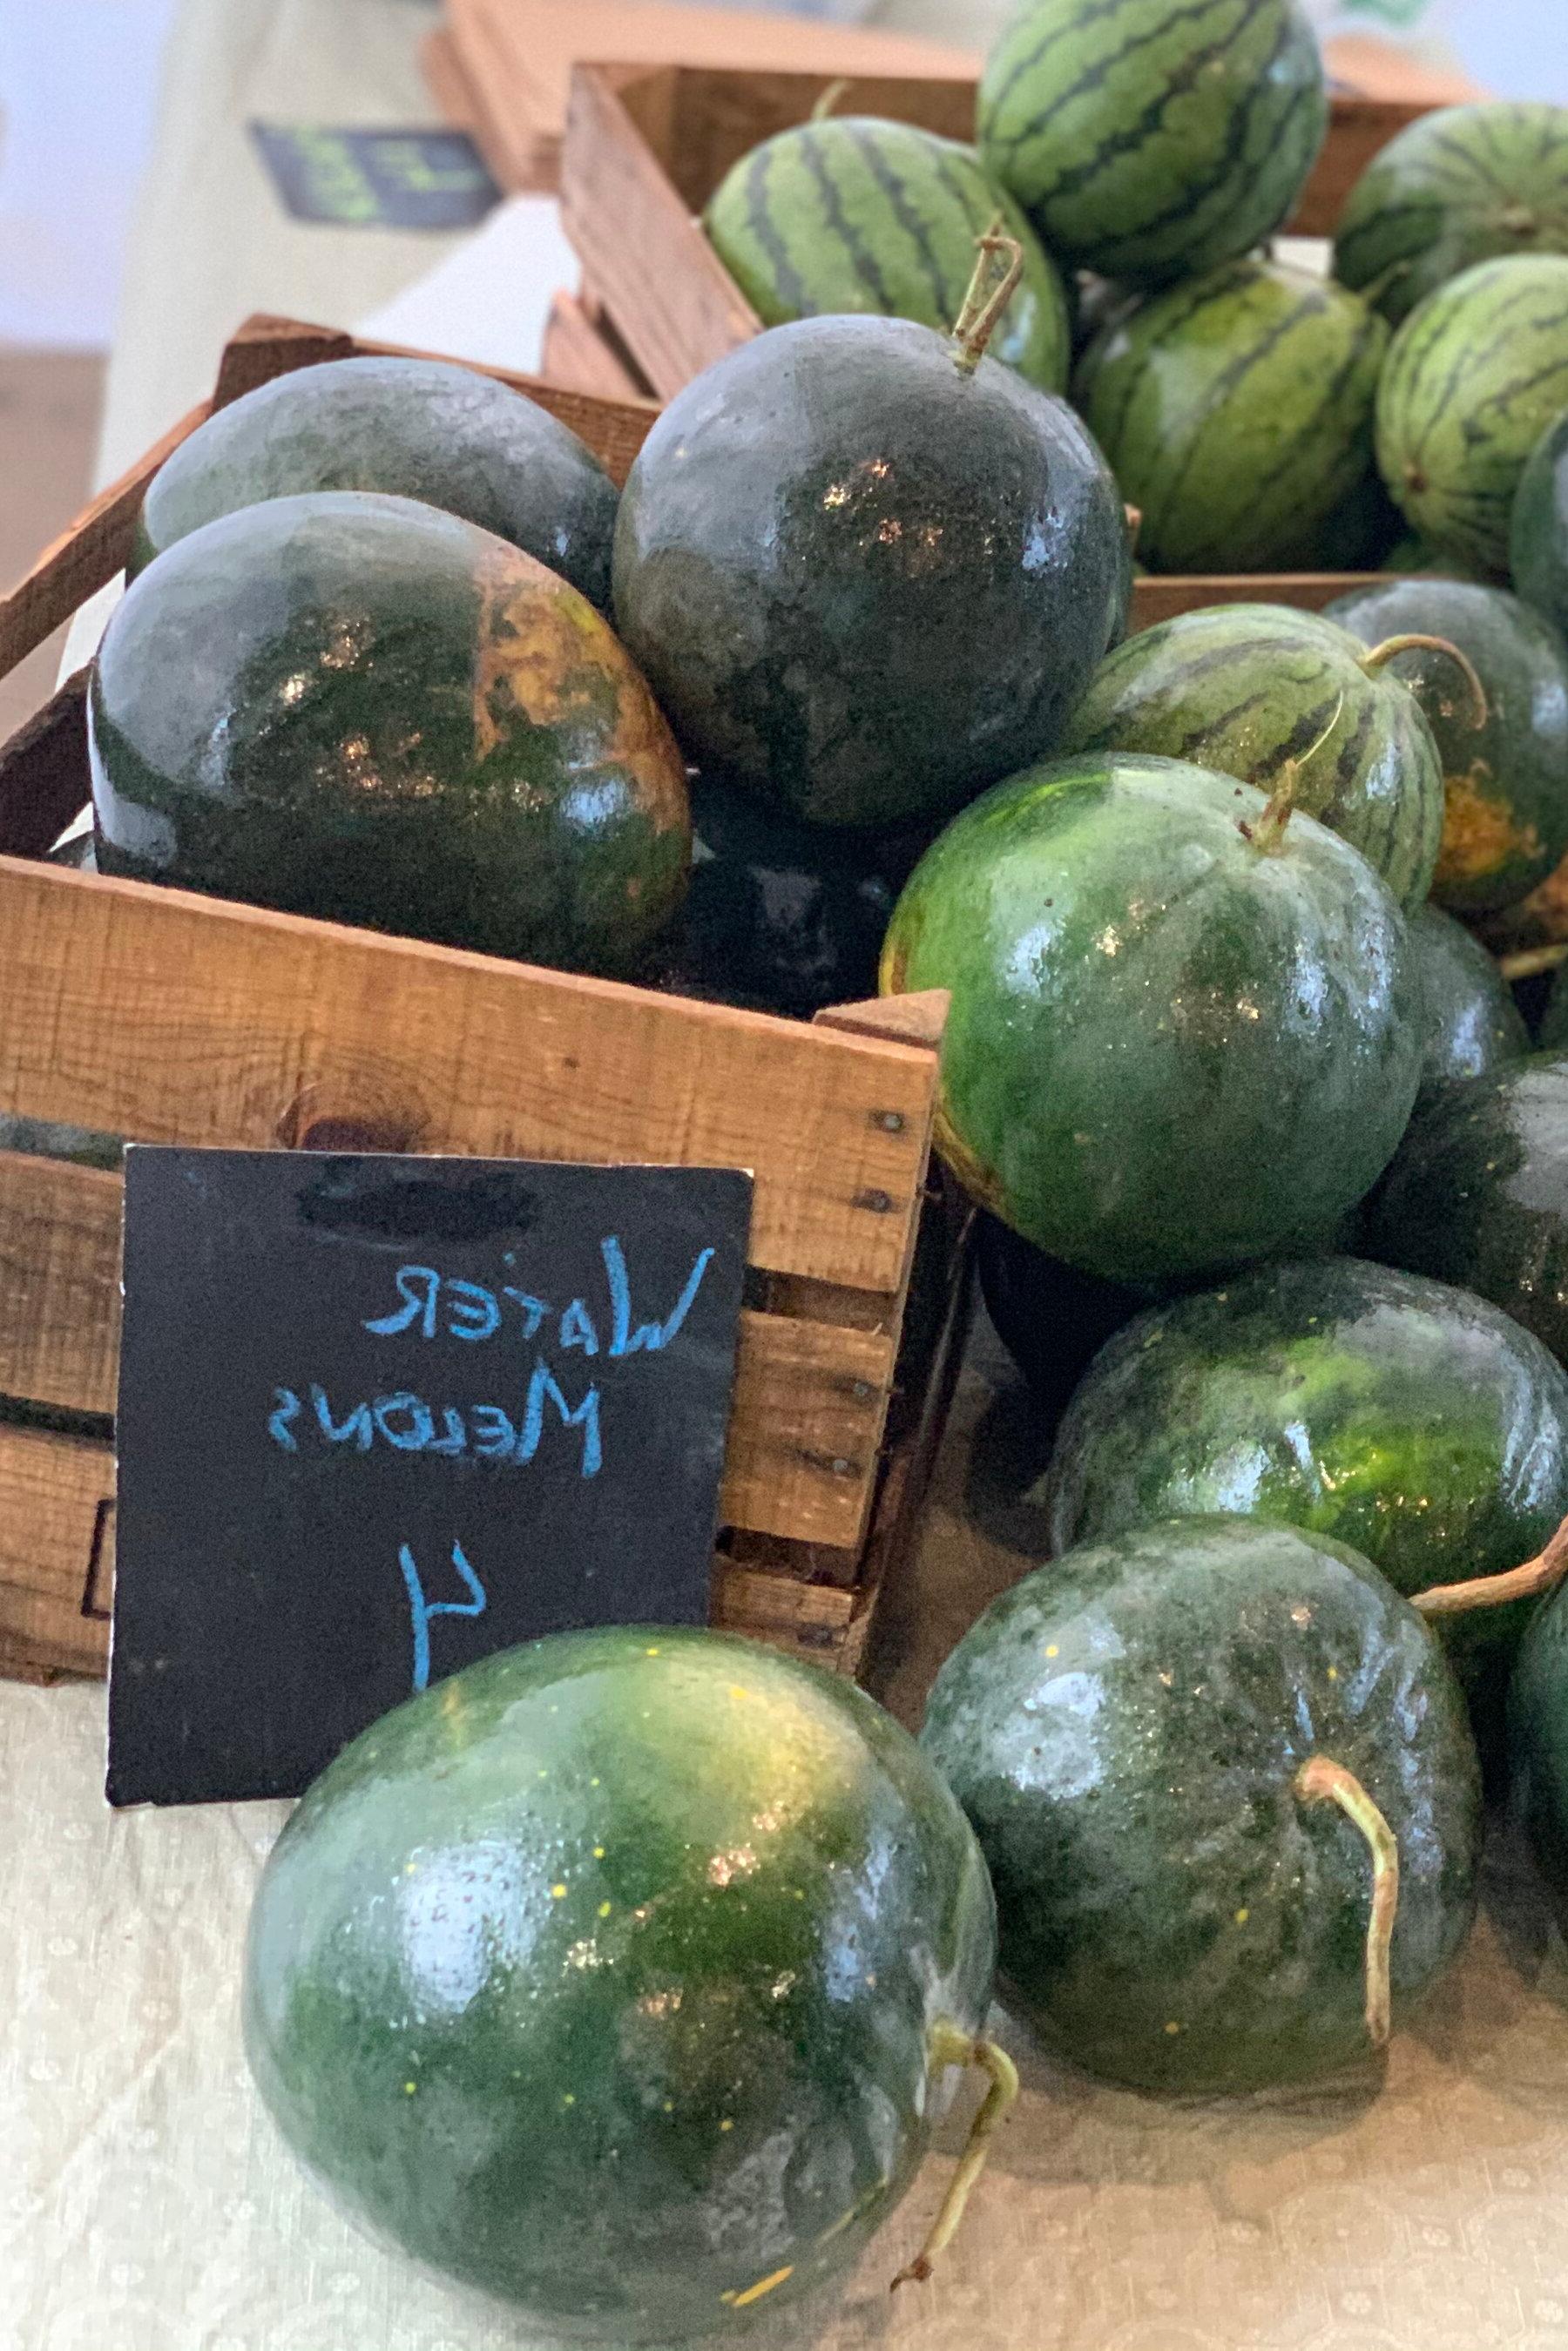 WATER
MELONS
4